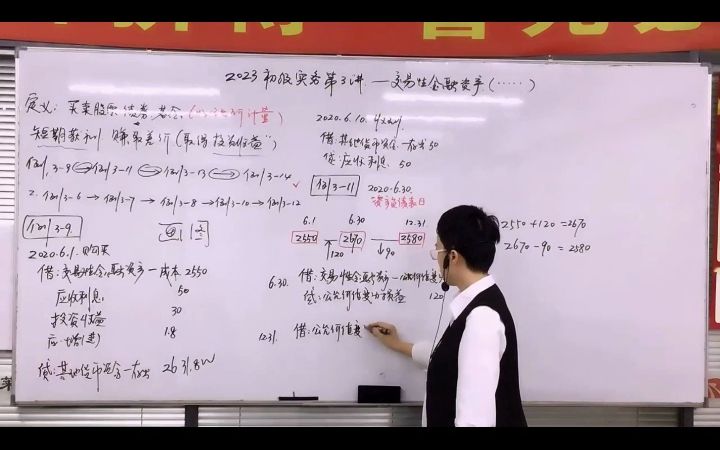 2023初级实务第3讲——交易性金融资产(……)
定义: 买卖股票 债券 基金 (公允价计量)
短期获利 赚取差价(取得"投资收益")
例3-9 例3-11 例3-13 例3-14 √
2. 例3-6→例3-7→例3-8→例3-10→例3-12
例3-9 画图
2020.6.1. 购买
借:交易性金融资产—成本 2550
应收利息: 50
投资收益 30
应 (进) 1.8
贷:其他货币资金—存出 2631.8W
2020.6.10. 收到
借:其他货币资金—存出 50
贷:应收利息. 50
例3-11 2020.6.30.
资产负债表日
6.1 6.30 12.31
2550 2670 2580
↑120 ↓90
6.30. 借:交易性金融资产—公允价值变
贷:公允价值变动损益 120
12.31. 借:公允价值变
2550+120=2670
2670-90=2580